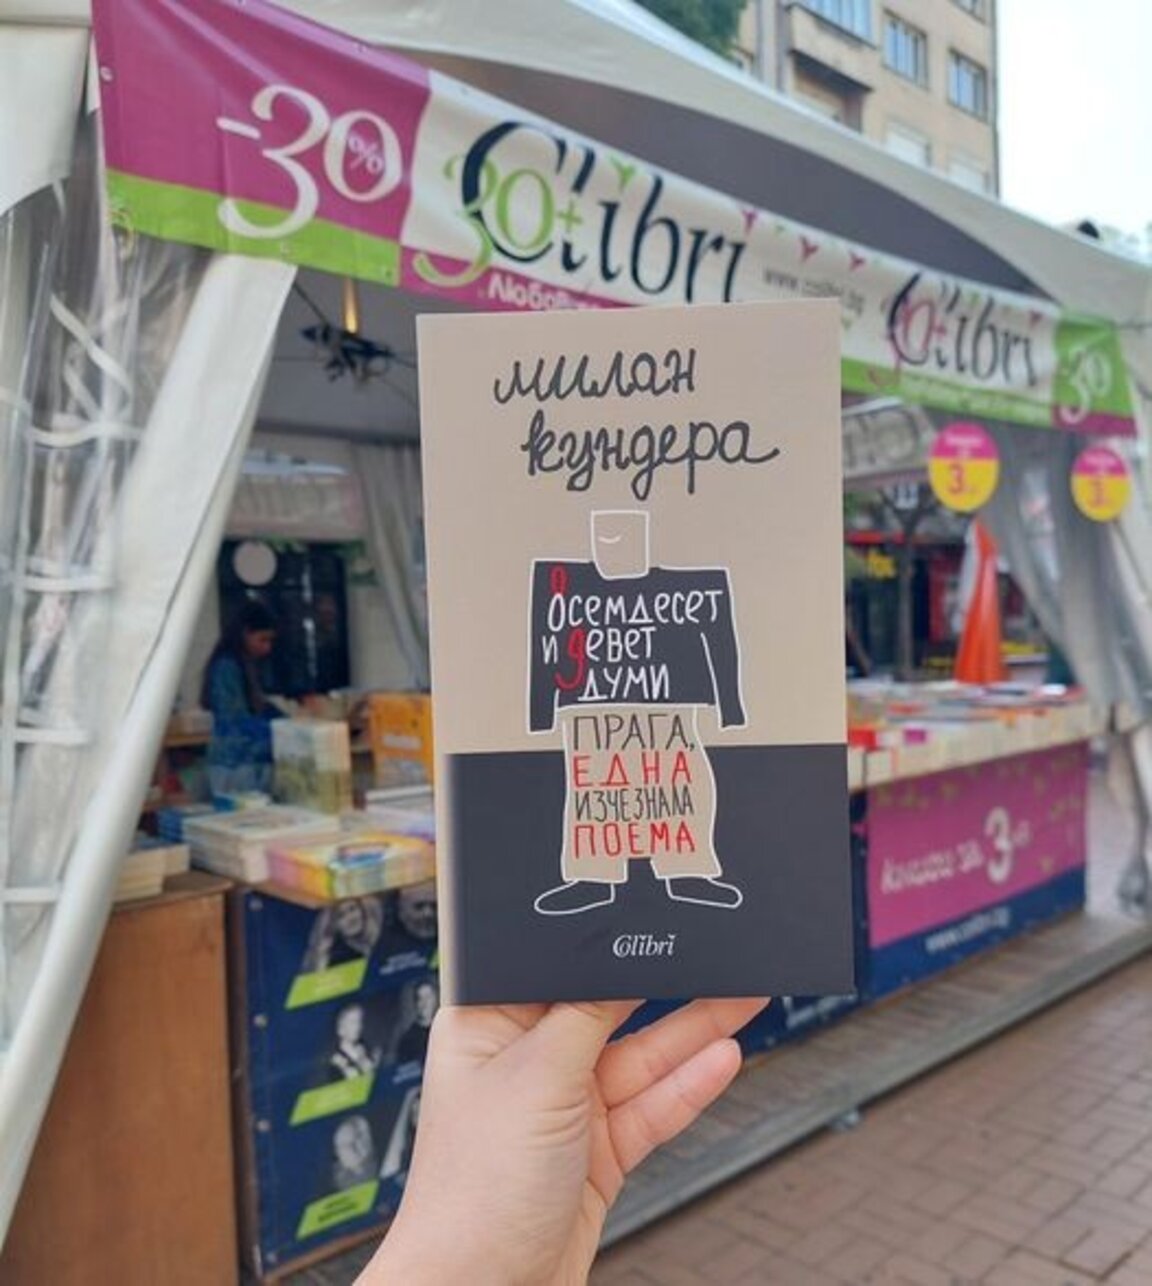 -30%
30+
Colibri
Любов
www.colibri.bg
30+
Colibri
-30
3
3
милан
кундера
Осемдесет
и девет
думи
ПРАГА,
ЕДНА
ИЗЧЕЗНАЛА
ПОЕМА
Colibri
книги за 3
www.colibri.bg